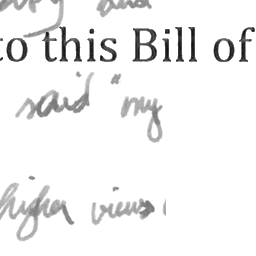 to this Bill of
said "my
higher views